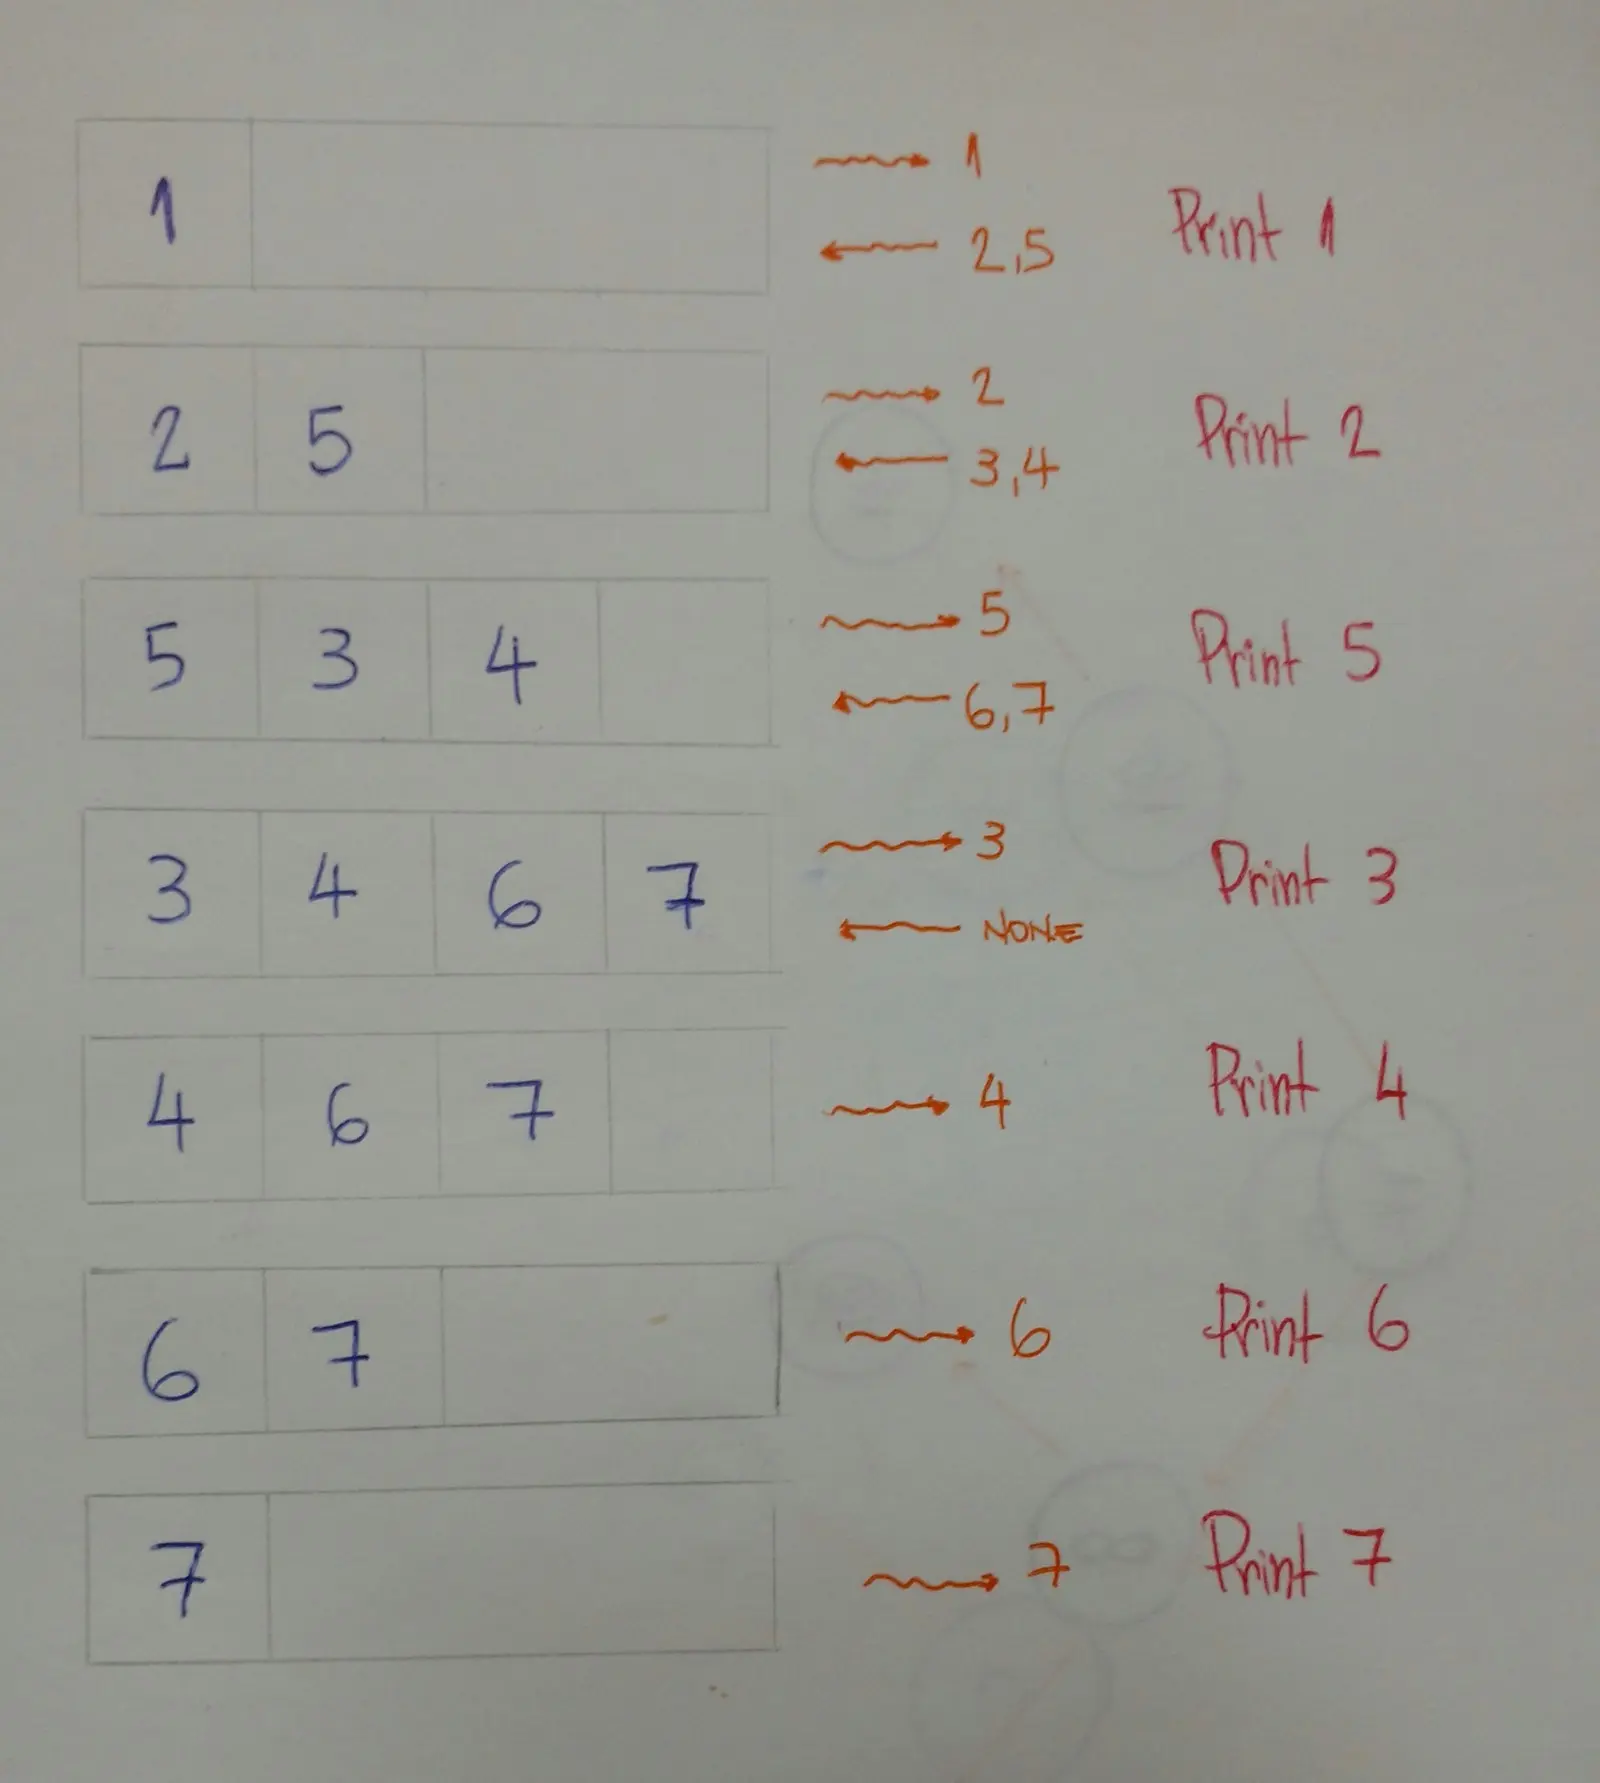 1 → 1 Print 1
← 2,5
2 5 → 2 Print 2
← 3,4
5 3 4 → 5 Print 5
← 6,7
3 4 6 7 → 3 Print 3
← NONE
4 6 7 → 4 Print 4
6 7 → 6 Print 6
7 → 7 Print 7